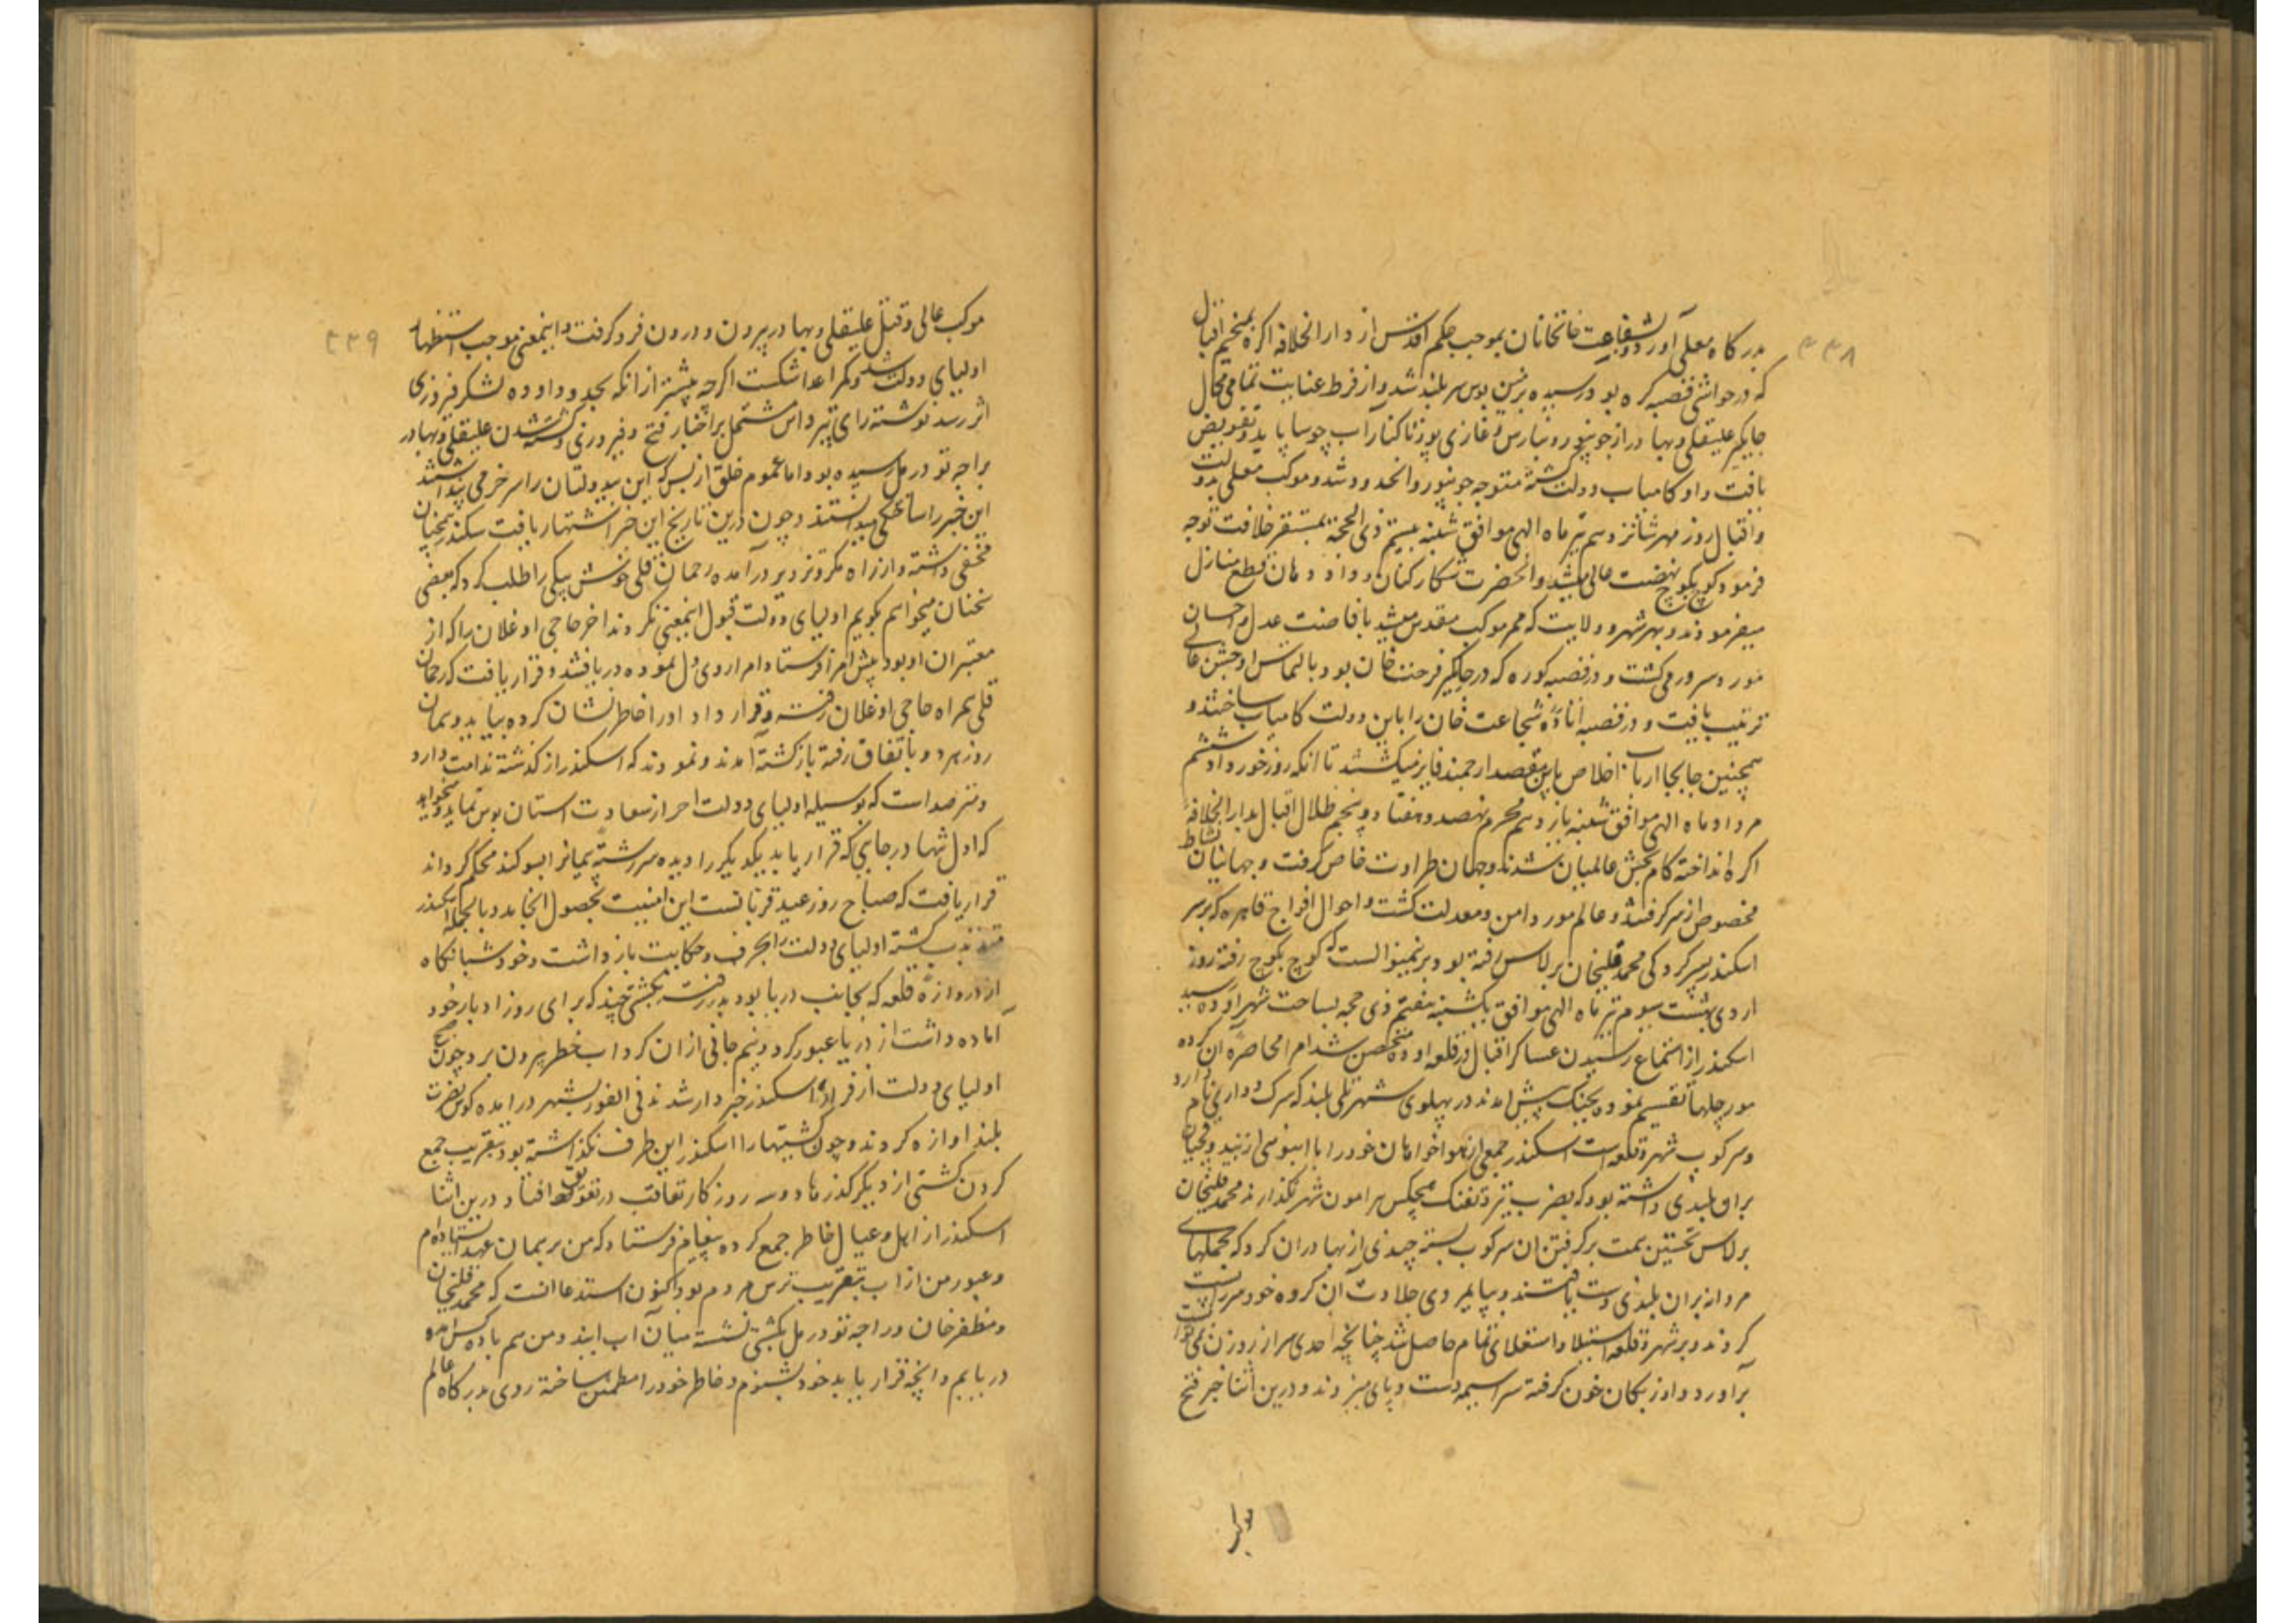 ۳۳۸
بدرگاه معلی آورد و بشفاعت خانخانان بموجب حکم اقدس از دارالخلافه اکره بمخیم اقبال
که در حواشی قصبه کره بود رسیده بزمین بوس سربلند شد و از فرط عنایت تمامی محال
جاکیر علیقلی و بهادر از جونپور و بنارس و غازی پور تا کنار آب چوسا باید و تفویض
یافت و او کامیاب دولت کشته متوجه جونپور و انحدود شد و موکب معلی بدولت
و اقبال روز مهر شانزدهم تیر ماه الهی موافق شنبه بیستم ذی الحجه بمستقر خلافت توجه
فرمود کوچ بکوچ نهضت عالی میشد و انحضرت شکار کنان و داد دهان قطع منازل
میفرمودند و بهر شهر و ولایت که ممر موکب مقدس میشد بافاضت عدل و احسان
مورد سرور می کشت و در قصبه کوره که در جاکیر فرحت خان بود بالتماس او جشن عالی
ترتیب یافت و در قصبه اتاوه شجاعت خان را باین دولت کامیاب ساختند و
همچنین جابجا ارباب اخلاص باین مقصد ارجمند فایز میکشتند تا انکه روز خورداد ششم
مرداد ماه الهی موافق شنبه یازدهم محرم نهصد و هفتاد و پنجم ظلال اقبال بدارالخلافه
اکره انداخته کام بخش عالمیان شدند و جهان طراوت خاص کرفت و جهانیان نشاط
مخصوص از سر کرفتند و عالم مورد امن و معدلت کشت و احوال افواج قاهره که بر سر
اسکندر بسرکردکی محمد قلیخان برلاس رفته بود برنمینوالست که کوچ بکوچ رفته روز
اردی بهشت سیوم تیر ماه الهی موافق یکشنبه هفتم ذی حجه بساحت شهر اوده رسید
اسکندر از استماع رسیدن عساکر اقبال در قلعه اوده متحصن شد امرا محاصره ان کرده
مورچلها تقسیم نموده بجنک پیش امدند در پهلوی شهر تلی بلند که سرک دواری نام دارد
و سرکوب شهر و قلعه است اسکندر جمعی از هواخواهان خود را با انبوهی از
بران بلندی داشته بود که بضرب تیر و تفنک هیچکس پیرامون شهر نکذارند محمد قلیخان
برلاس نخستین همت بر کرفتن ان سرکوب بسته چندی از بهادران کرد که بحملهای
مردانه بران بلندی دست یافتند و بپایمردی جلادت آن کروه خود سر را پست
کردند و بر شهر و قلعه استیلا و استعلای تمام حاصل شد چنانچه احدی سر از روزن نمی توانست
برآورد و اوزبکان خون کرفته سراسیمه دست و پای میزدند و درین اثنا خبر فتح
موکب
۳۳۹
موکب عالی و قتل علیقلی و بهادر بیرون و درون فرو کرفت و اینمعنی موجب استظهار
اولیای دولت شد و کمر اعدا شکست اکرچه پیشتر از انکه بحدود اوده لشکر فیروزی
اثر رسد نوشته رای پترداس مشتمل بر اخبار فتح و فیروزی و کشته شدن علیقلی و بهادر
براجه تودرمل رسیده بود اما عموم خلق از بس که این بیدولتان را سر خر می پنداشتند
این خبر را ساختکی میدانستند و چون درین تاریخ این خبر اشتهار یافت سکندر همچنان
مخفی داشته و از راه مکر و تزویر درآمده رحمان قلی قوش بیکی را طلب کرد که بعضی
سخنان میخواهم بکویم اولیای دولت قبول اینمعنی نکردند اخر حاجی اوغلان را که از
معتبران او بود پیش امرا فرستاد امرا روی دل نموده دریافتند و قرار یافت که رحمان
قلی همراه حاجی اوغلان رفته و قرار داد او را خاطر نشان کرده بیاید و همان
روز هر دو باتفاق رفته باز کشته آمدند و نمودند که اسکندر از کذشته ندامت دارد
و مترصد است که بوسیله اولیای دولت احراز سعادت استان بوس نماید و میخواهد
که اول شما در جایی که قرار یابد یکدیکر را دیده سررشته پیمانرا بسوکند محکم کرداند
قرار یافت که صباح روز عید قربانست این امنیت بحصول انجامد و بالجمله اسکندر
متذبذب کشته اولیای دولت را بحرف و حکایت باز داشت و خود شبانکاه
از دروازه قلعه که بجانب دریا بود بدر رفته بکشتی چند که برای روز ادبار خود
آماده داشت از دریا عبور کرد و نیم جانی ازان کرداب خطر بیرون برد چون صبح
اولیای دولت از فرار اسکندر خبردار شدند فی الفور بشهر درامده کوس نصرت
بلند اوازه کردند و چون کشتیها را اسکندر این طرف نکذاشته بود بتقریب جمع
کردن کشتی از دیکر کذرها دو سه روز کار تعاقب در تعویق افتاد و درین اثنا
اسکندر از اهل و عیال خاطر جمع کرده پیغام فرستاد که من بر همان عهد ایستاده ام
و عبور من از اب بتقریب ترس مردم بود اکنون استدعا انست که محمد قلیخان
و مظفر خان و راجه تودرمل بکشتی نشسته میان آب ایند و من هم با ده کس امده
دریابم و انچه قرار یابد خود بشنوم و خاطر خود را مطمئن ساخته روی بدرکاه عالم